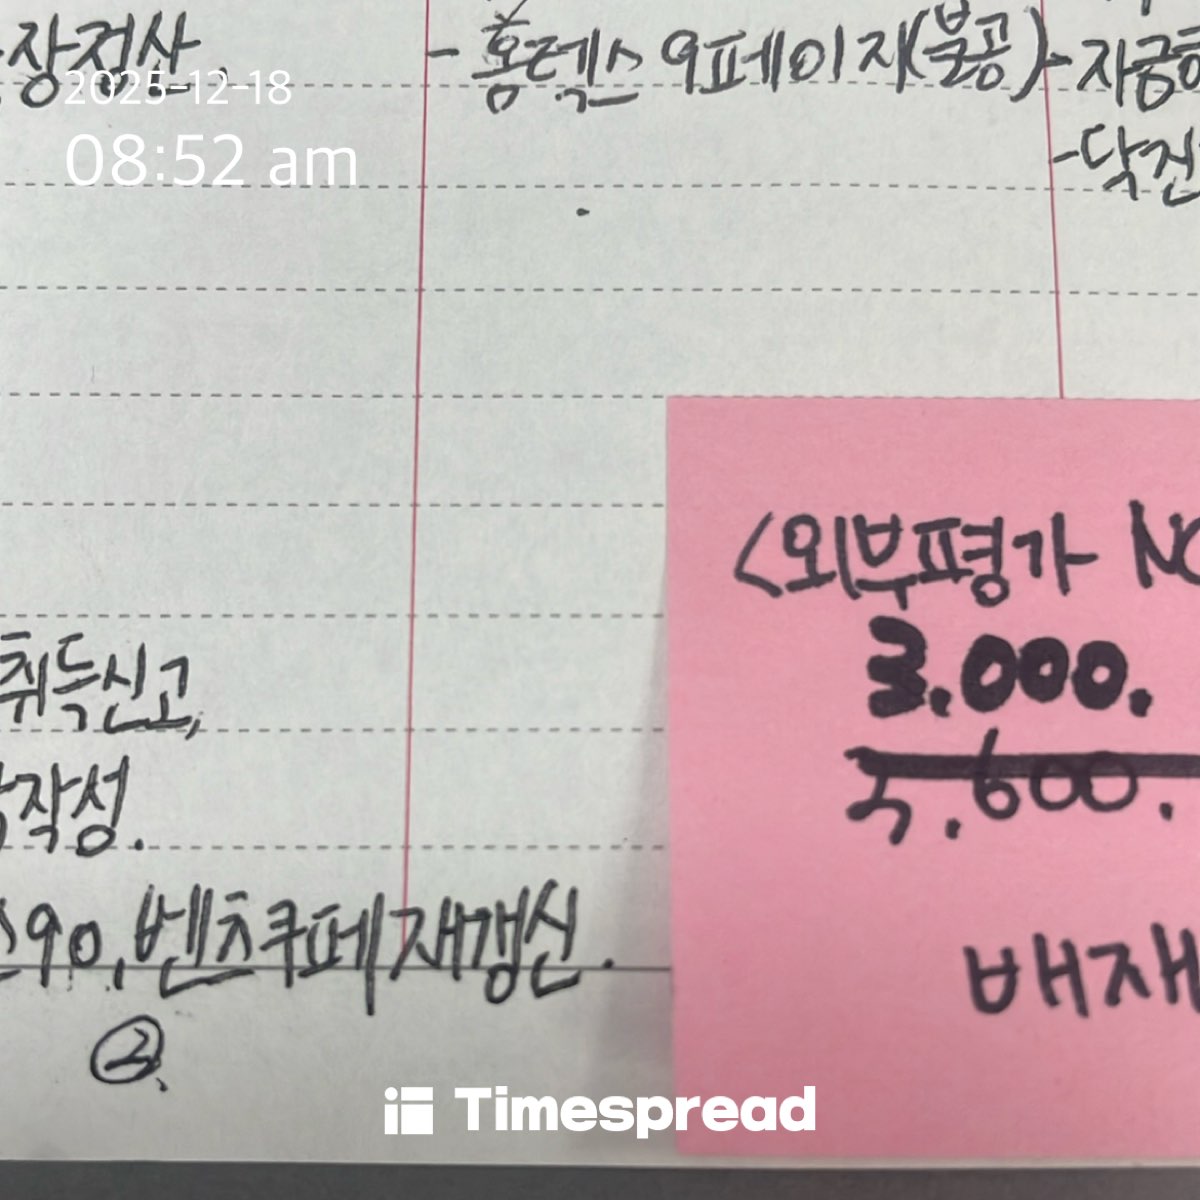 장정산.
2025-12-18
08:52 am
- 홈텍스 9페이지(불공)
- 지금
- 닥진
<외부평가 NO
3.000.
5.600.
배재
취득신고,
작성.
90, 벤츠쿠페재갱신.
②
Timespread